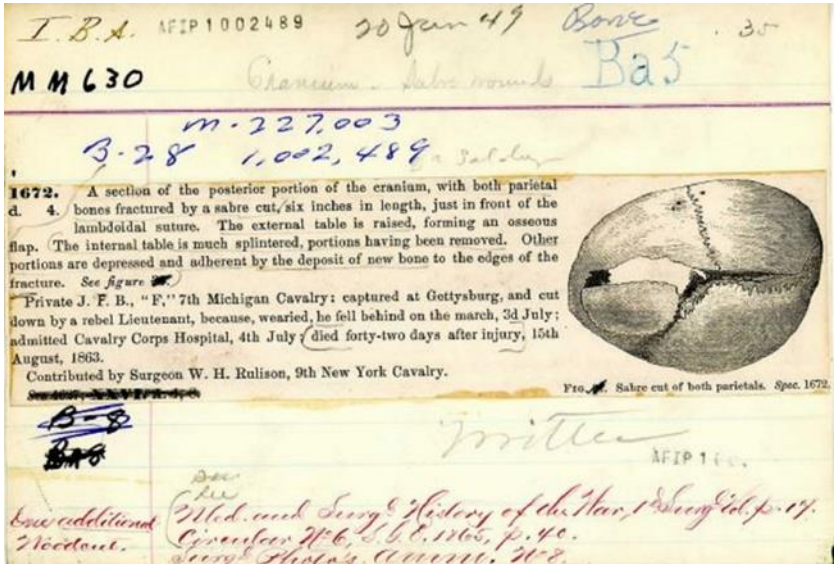 I.B.A. AFIP 1002489 20 Jan 49 Bone . 35
MM630 Cranium - Sabre wounds Ba5
M-227,003
B-28 1,002,489
1672. A section of the posterior portion of the cranium, with both parietal
d. 4. bones fractured by a sabre cut, six inches in length, just in front of the
lambdoidal suture. The external table is raised, forming an osseous
flap. The internal table is much splintered, portions having been removed. Other
portions are depressed and adherent by the deposit of new bone to the edges of the
fracture. See figure
Private J. F. B., "F," 7th Michigan Cavalry: captured at Gettysburg, and cut
down by a rebel Lieutenant, because, wearied, he fell behind on the march, 3d July;
admitted Cavalry Corps Hospital, 4th July; died forty-two days after injury, 15th
August, 1863.
Contributed by Surgeon W. H. Rulison, 9th New York Cavalry.
FIG. Sabre cut of both parietals. Spec. 1672.
B-8
Written
AFIP 1
see
One additional Med. and Surg'l History of the War, 1st Surg'l Vol. p. 17.
Woodcut. Circular Nº 6, S.G.O. 1865, p. 40.
Surg'l Photo's. Nº 8.